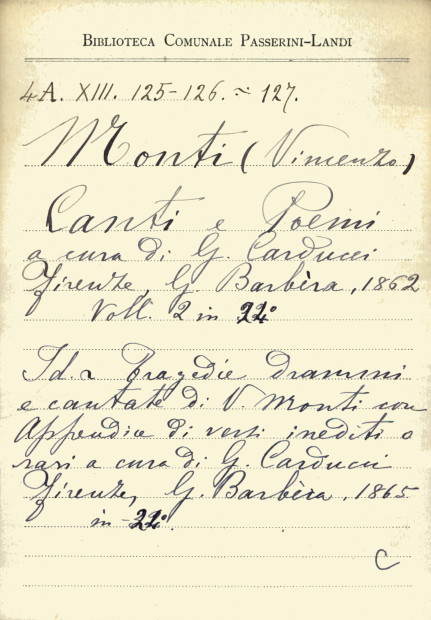 BIBLIOTECA COMUNALE PASSERINI-LANDI
4A. XIII. 125-126. ~ 127.
Monti (Vincenzo)
Canti e Poemi
a cura di G. Carducci
Firenze, G. Barbèra, 1862
Voll. 2 in 24°
Id. ~ Tragedie drammi
e cantate di V. Monti con
Appendice di versi inediti o
rari a cura di G. Carducci
Firenze, G. Barbèra, 1865
in 24°.
C